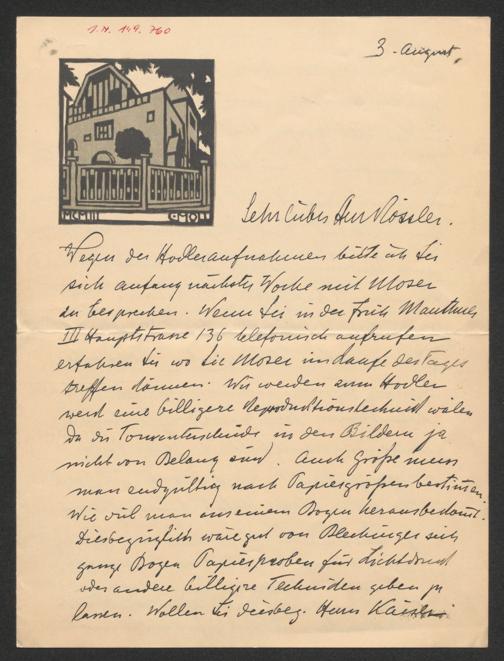 I.N. 149.760
3. August.
MCMIII C·MOLL
Sehr lieber Herr Rössler.
Wegen der Hodleraufnahmen bitte ich Sie
sich anfang nächster Woche mit Moser
zu besprechen. Wenn Sie in der Früh Mautner
III Hauptstrasse 136 telefonisch aufrufen
erfahren Sie wo Sie Moser im Laufe des Tages
treffen können. Wir werden zum Hodler
werk eine billigere Reproduktionstechnik wälen
da die Tonunterschiede in den Bildern ja
nicht von Belang sind. Auch Größe muss
man endgültig nach Papiergrößen bestimmen.
Wie viel man aus einem Bogen herausbekomt.
Diesbezüglich wäre gut von Blechinger sich
ganze Bogen Papierproben für Lichtdruck
oder andere billigere Techniken geben zu
lassen. Wollen Sie diesbez. Herrn